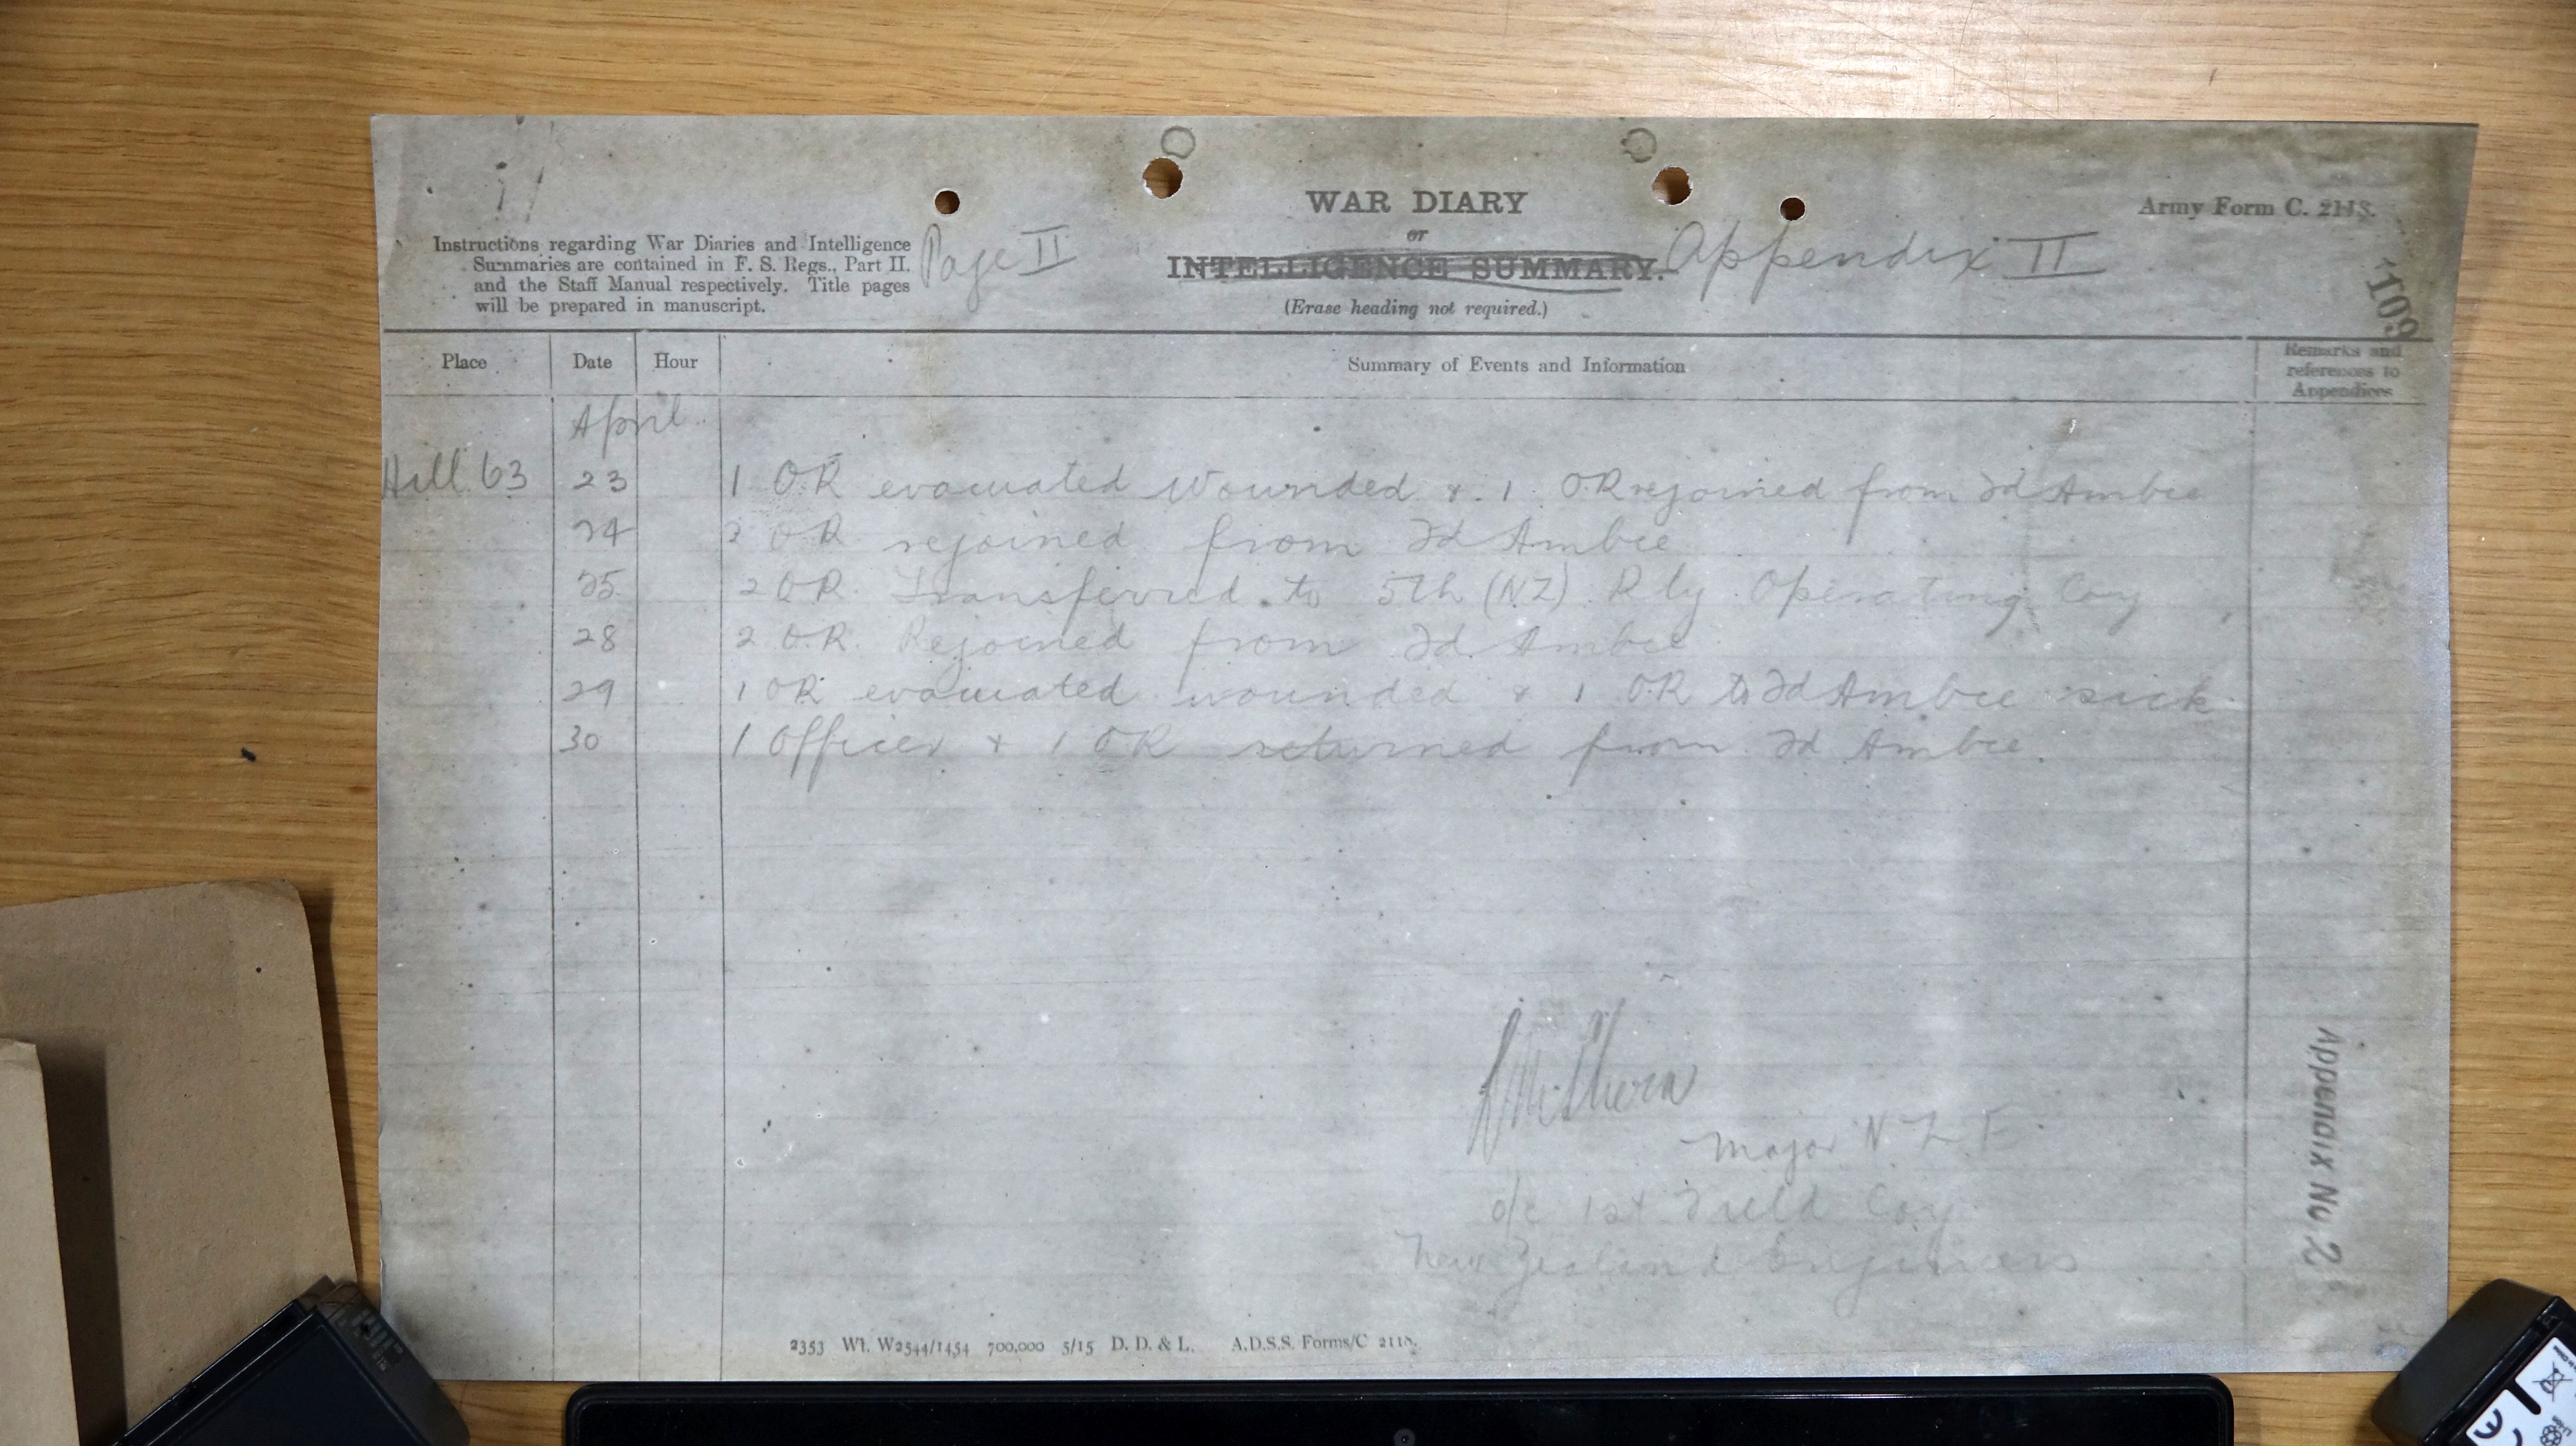 WAR DIARY
or
INTELLIGENCE SUMMARY.
(Erase heading not required.)
Army Form C. 2118.
Instructions regarding War Diaries and Intelligence
Summaries are contained in F. S. Regs., Part II.
and the Staff Manual respectively. Title pages
will be prepared in manuscript.
Page II
Appendix II
109
Place Date Hour Summary of Events and Information Remarks and references to Appendices
April
Hill 63 23 1 OR evacuated Wounded & 1 OR rejoined from Fd Ambce
24 2 OR rejoined from Fd Ambce
25 2 OR. Transferred to 5th (NZ) Rly Operating Coy
28 2 O.R. Rejoined from Fd Ambce
29 1 OR evacuated wounded & 1 OR to Fd Ambce sick
30 1 Officer & 1 OR returned from Fd Ambce.
Major N Z E
o/c 1st Field Coy
New Zealand Engineers
Appendix No. 2
2353 Wt. W2544/1454 700,000 5/15 D. D. & L. A.D.S.S. Forms/C 2118.